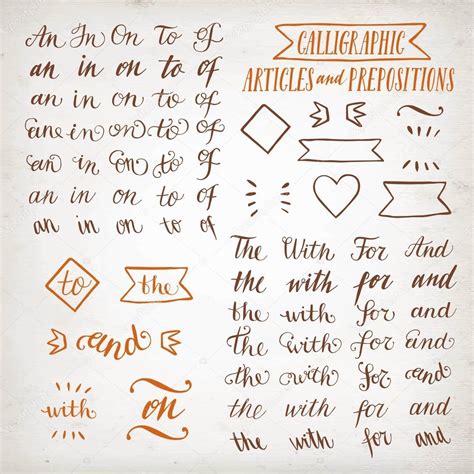 An In On To of
an in on to of
an in on to of
an in on to of
an in on to of
an in on to of
an in on to of
CALLIGRAPHIC
ARTICLES and PREPOSITIONS
The With For And
the with for and
the with for and
The with for and
the with for and
the with for and
the with for and
to the
and
with on